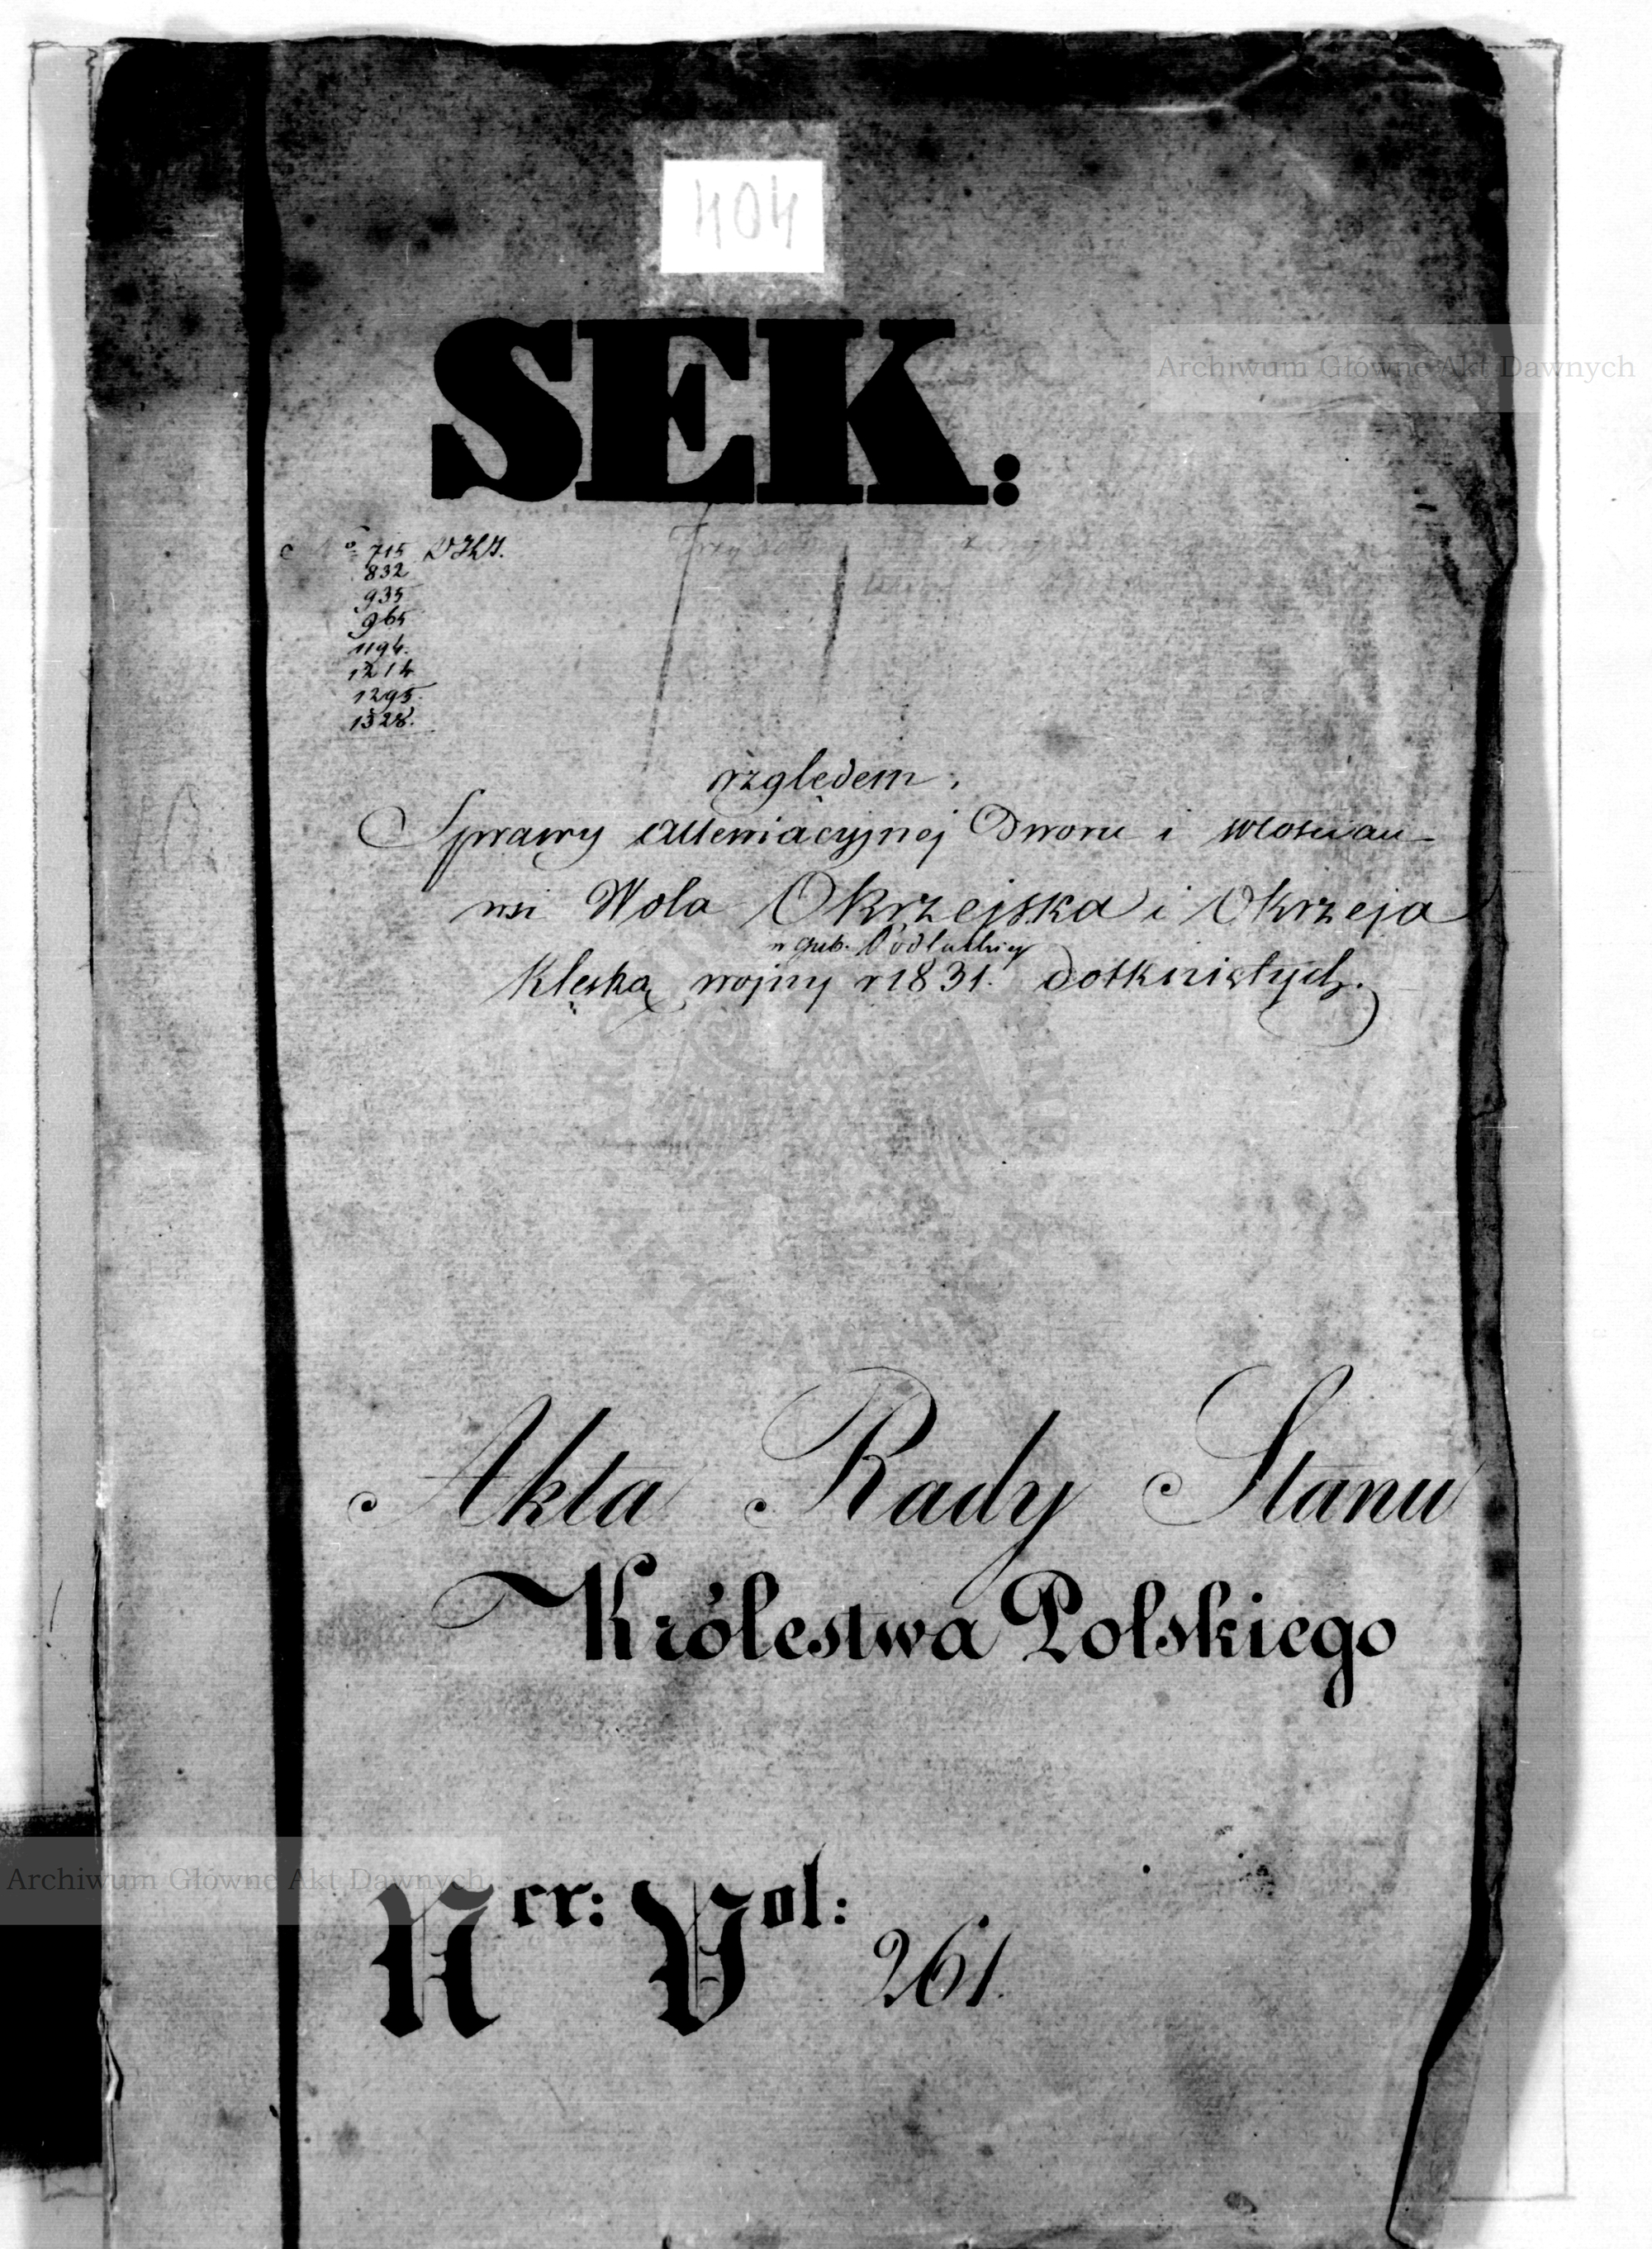 404
SEK:
Archiwum Główne Akt Dawnych
No 715
832
935
965
1194.
1214
1295.
1328.
względem
Sprawy Dworu i włościan
wsi Wola Okrzejska i Okrzeja
w Gub. Podlaskiej
Klęską wojny r 1831. dotkniętych.
Akta Rady Stanu
Królestwa Polskiego
Archiwum Główne Akt Dawnych
Ner: Vol: 261.